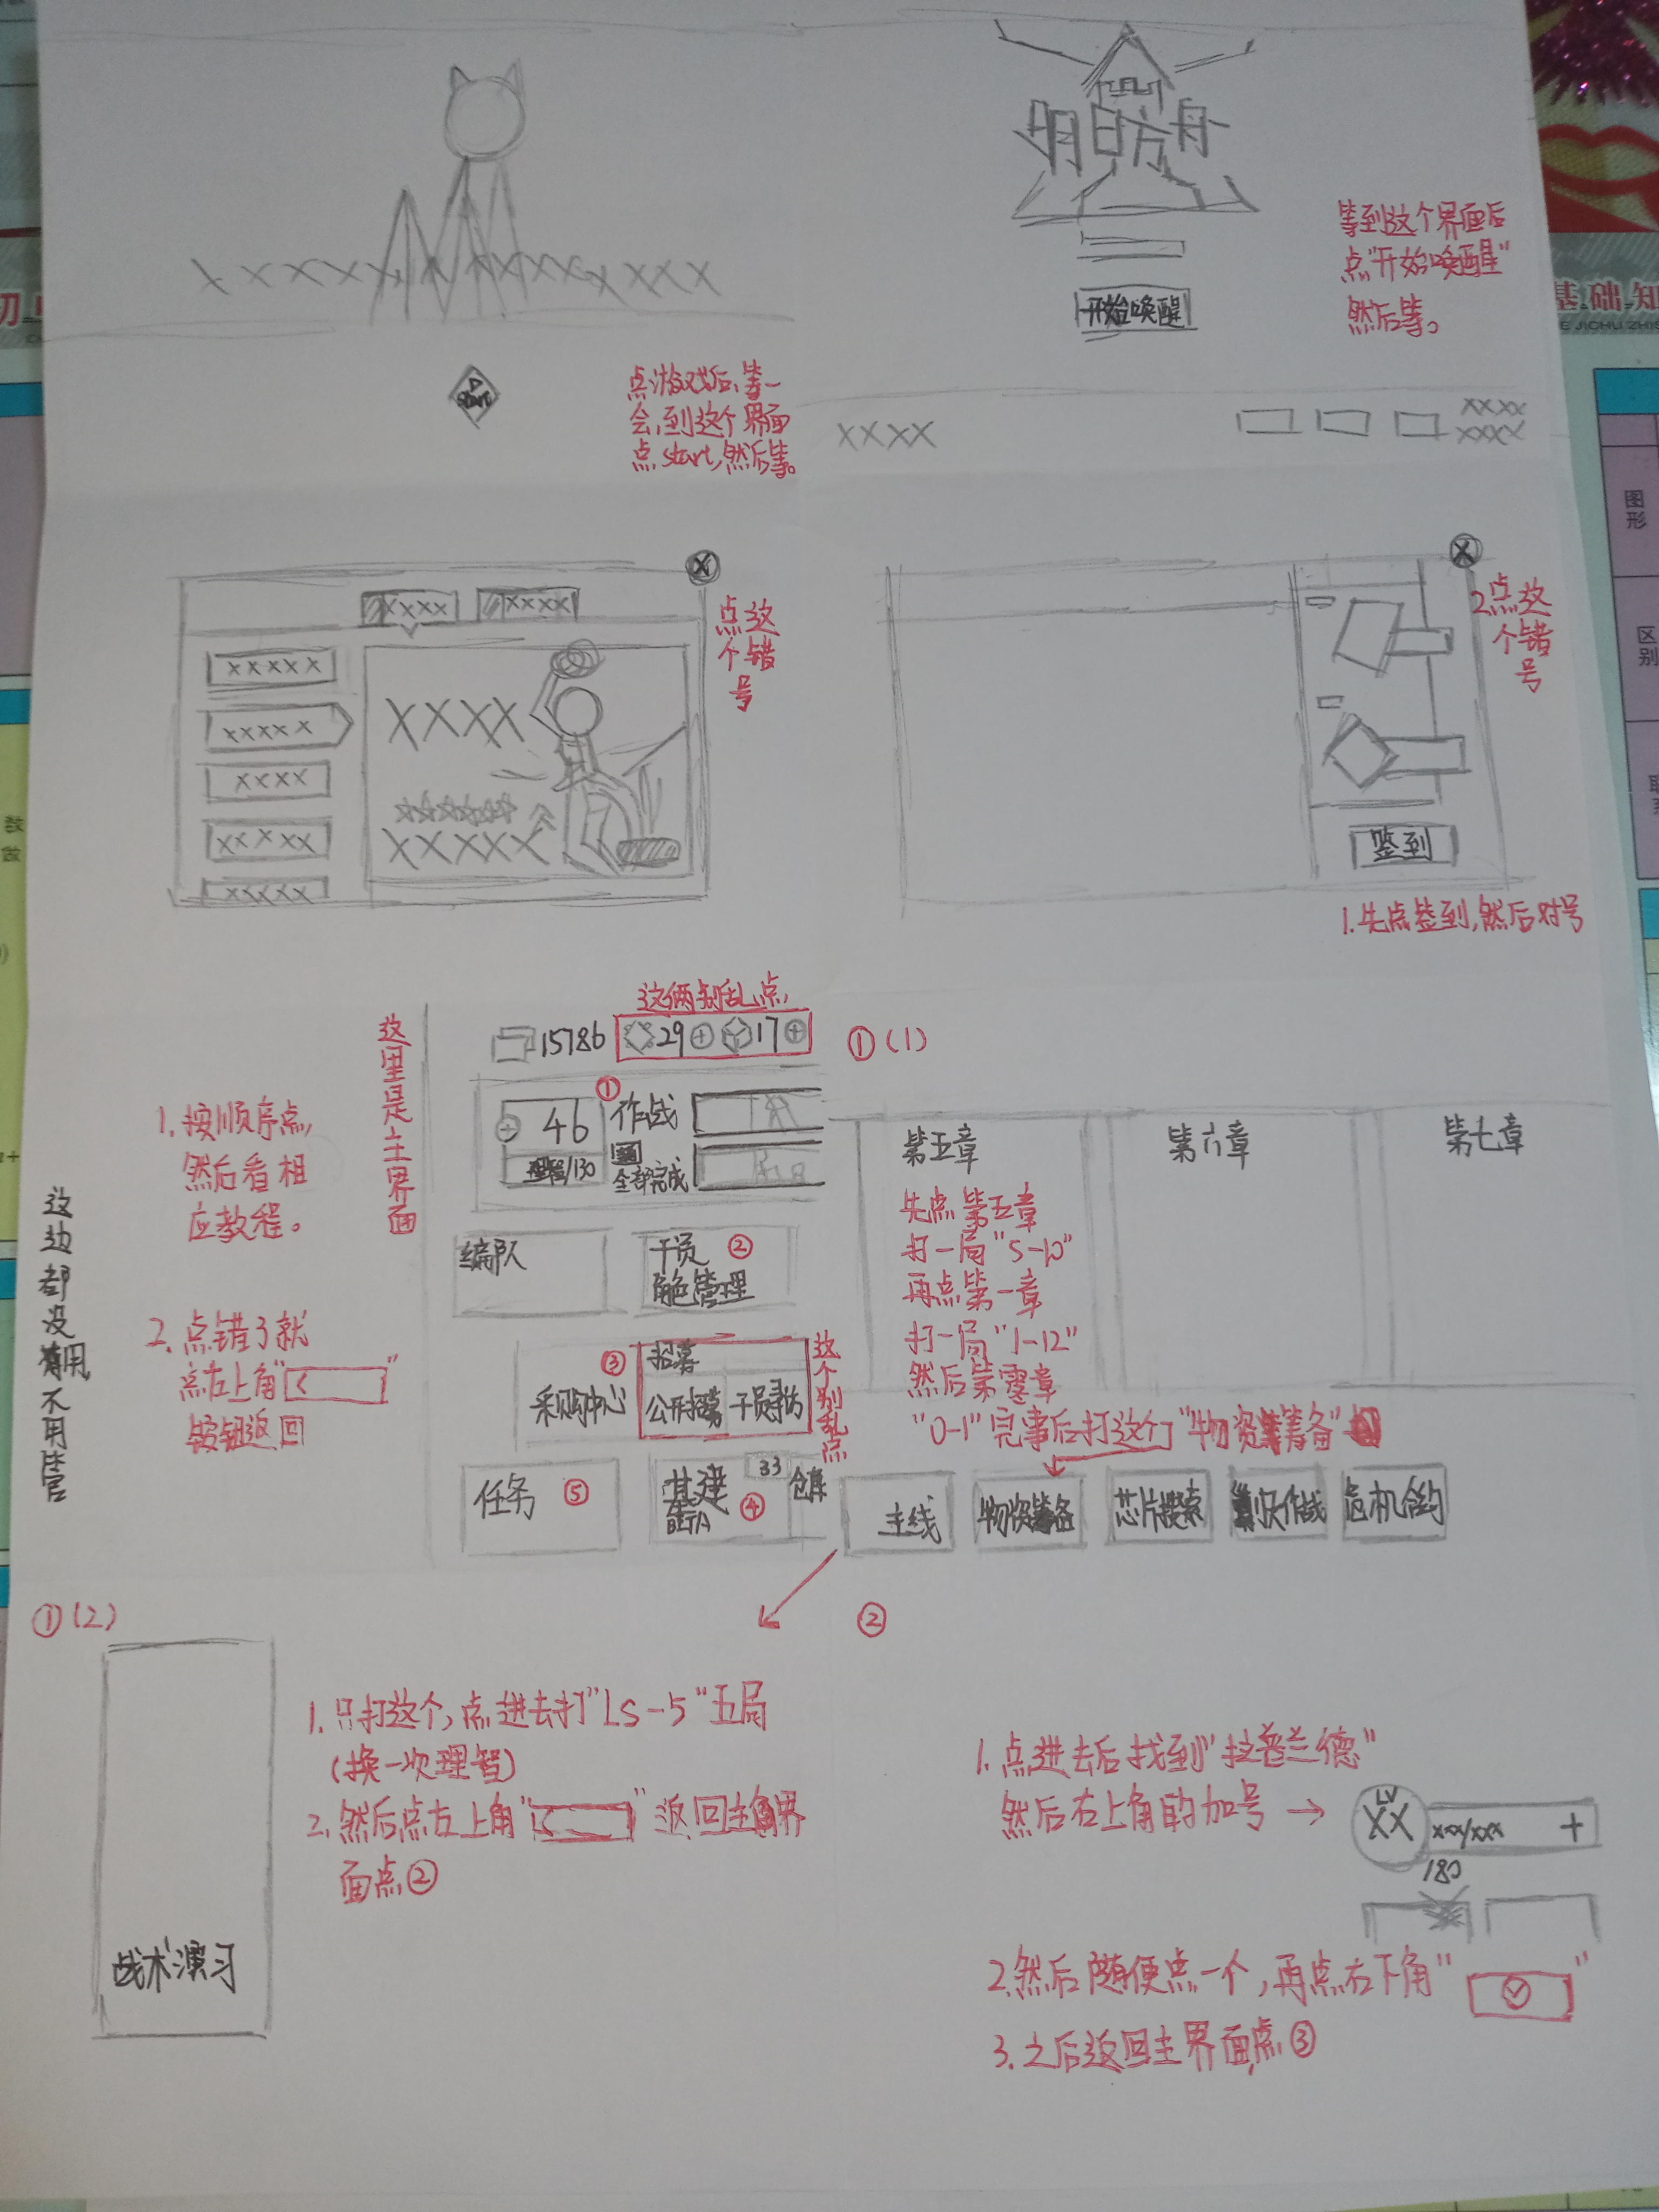 明日方舟
开始唤醒
等到这个界面后
点“开始唤醒”
然后等。
start
点游戏后,等一
会,到这个界面
点start,然后等。
XXXX
XXXX
XXXX
XXXX
XXXX
X
点这个错号
XXXXX
XXXXX
XXXX
XXXXX
XXXXX
XXXX
XXXXX
X
2.点这个错号
签到
1.先点签到,然后对号
这俩别乱点
15786
29
17
这里是主界面
1.按顺序点,
然后看相
应教程。
2.点错了就
点左上角“<”
按钮返回
这边都没有用,不用管
46
理智/130
① 作战
全部完成
编队
干员 ②
角色管理
③
采购中心
招募
公开招募 干员寻访
这个别乱点
任务 ⑤
基建
④
33
仓库
①(1)
第五章
第六章
第七章
先点第五章
打一局“5-10”
再点第一章
打一局“1-12”
然后第零章
“0-1”完事后打这个“物资筹备”
主线
物资筹备
芯片搜索
剿灭作战
危机合约
①(2)
战术演习
1.只打这个,点进去打“LS-5”五局
(换一次理智)
2.然后点左上角“<”返回主界
面点②
②
1.点进去后找到“拉普兰德”
然后右上角的加号→
LV
XX
xxx/xxx
+
180
2.然后随便点一个,再点右下角“✓”
3.之后返回主界面,点③
初
基础知
E JICHU ZHIS
图形
区别
数
做